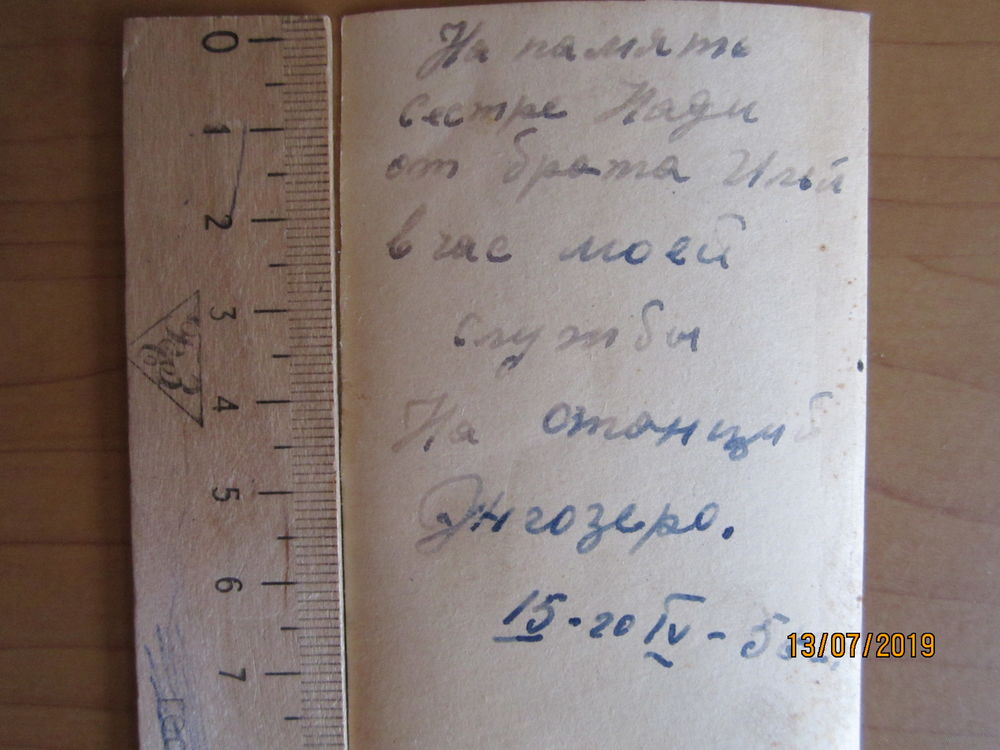 На память
сестре Нади
от брата Ильи
в час моей
службы
На станции
Энгозеро.
15-го IV - 5
13/07/2019
0
1
2
3
4
5
6
7